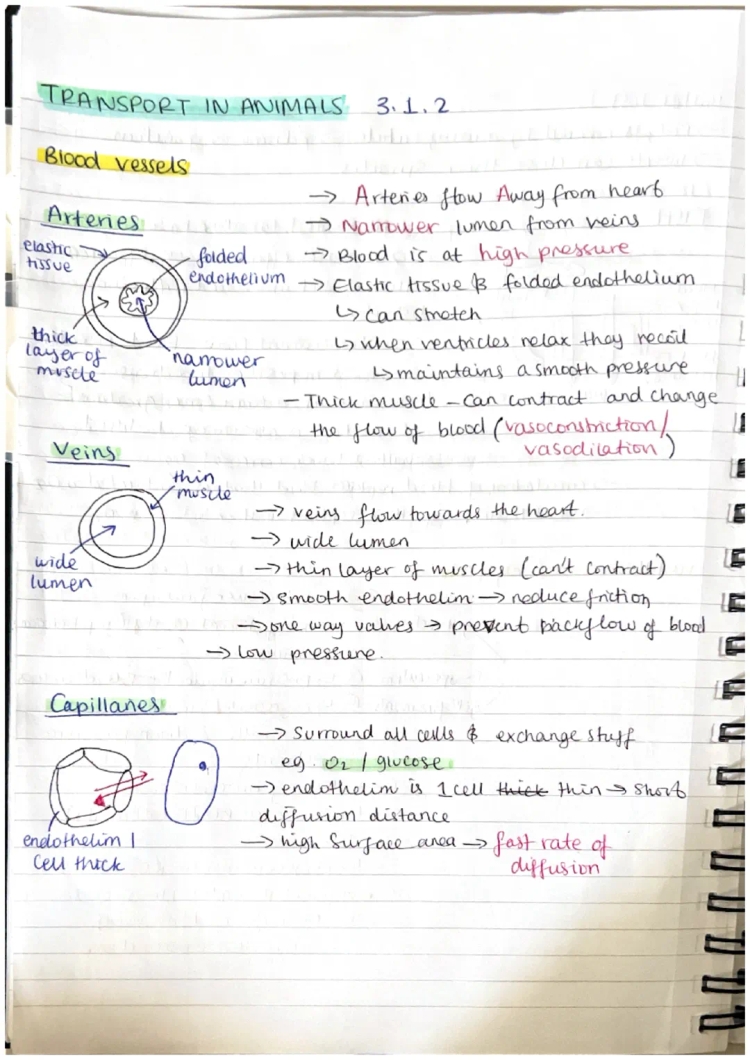 TRANSPORT IN ANIMALS 3.1.2
Blood vessels
Arteries
elastic
tissue
folded
endothelium
thick
layer of
muscle
narrower
lumen
→ Arteries flow Away from heart
→ Narrower lumen from veins
→ Blood is at high pressure
→ Elastic tissue & folded endothelium
↳ can stretch
↳ when ventricles relax they recoil
↳ maintains a smooth pressure
– Thick muscle – can contract and change
the flow of blood (vasoconstriction/
vasodilation)
Veins
thin
muscle
wide
lumen
→ veins flow towards the heart.
→ wide lumen
→ thin layer of muscles (can't contract)
→ smooth endothelim → reduce friction
→ one way valves → prevent backflow of blood
→ low pressure.
Capillaries
endothelim 1
cell thick
→ Surround all cells & exchange stuff
eg. O2 / glucose
→ endothelim is 1 cell thick thin → short
diffusion distance
→ high surface area → fast rate of
diffusion